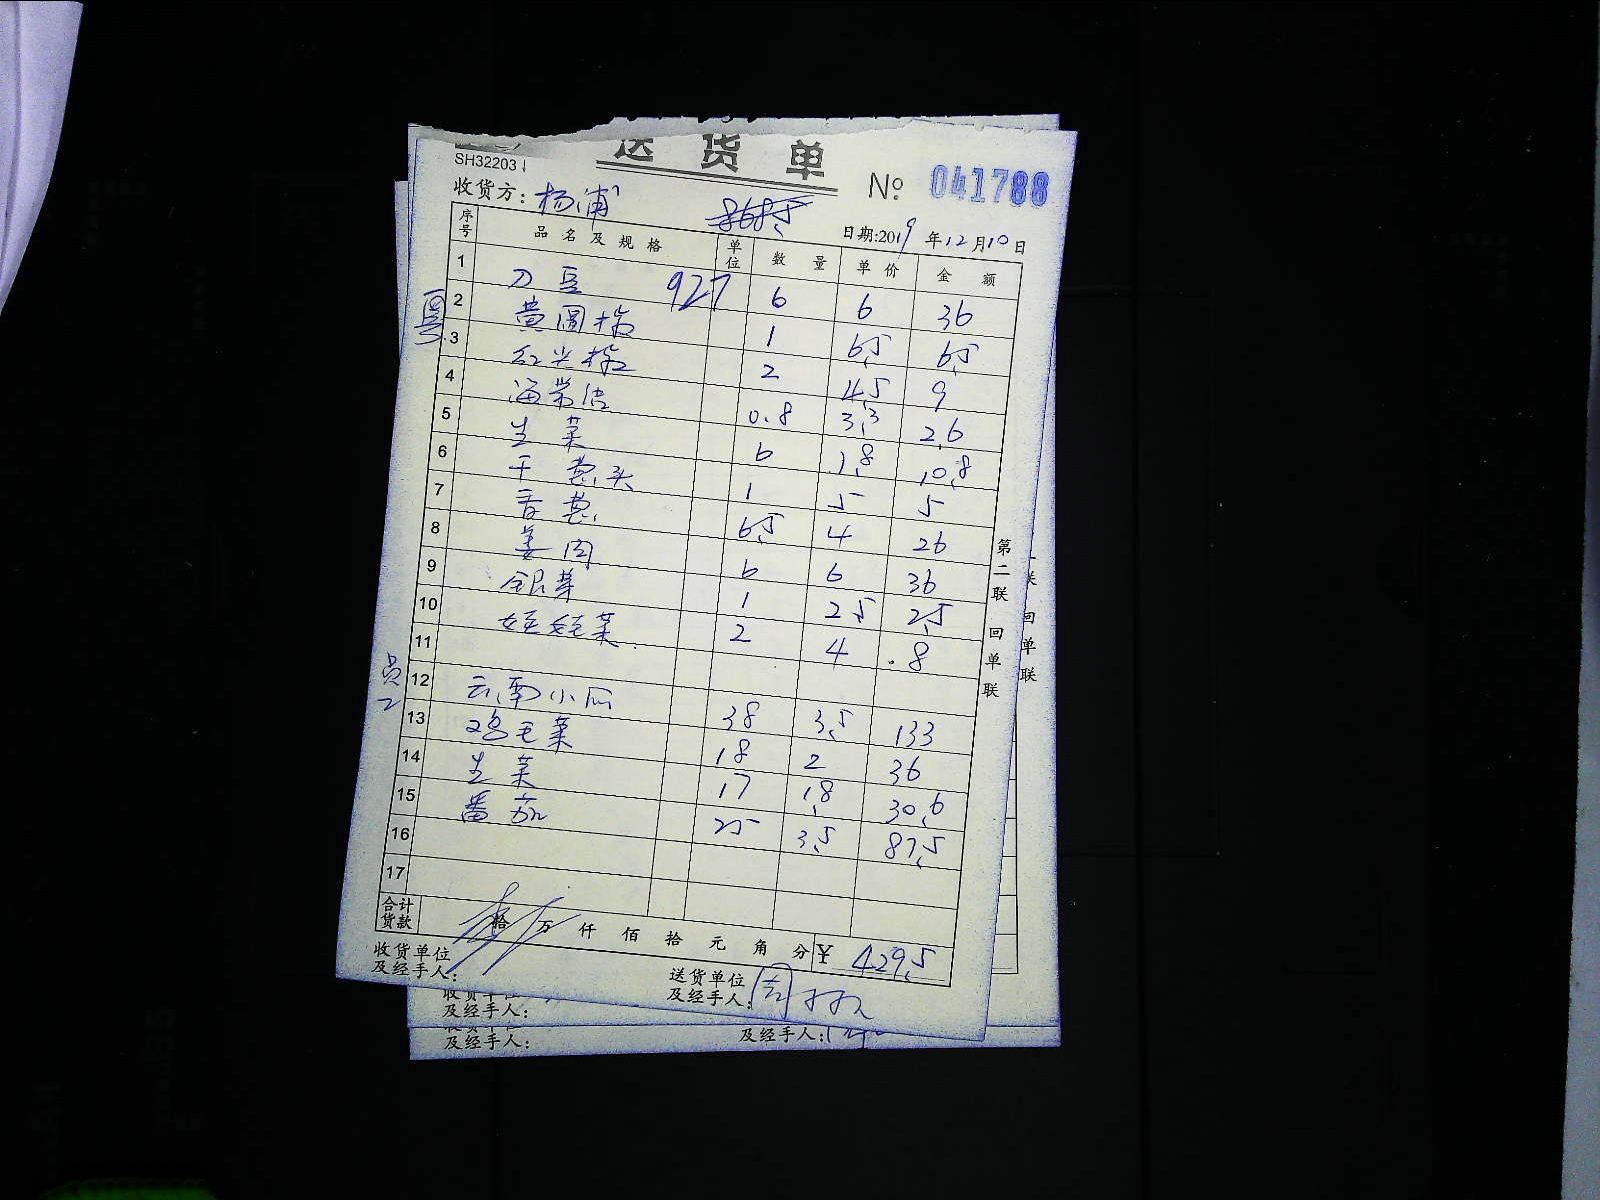 送货单
SH32203
№ 041788
收货方: 杨浦
8685
日期:2019年12月10日
序号 品名及规格 单位 数量 单价 金额
927
粤
1 刀豆 6 6 36
2 黄圆椒 1 6.5 6.5
3 红尖椒 2 4.5 9
4 海带结 0.8 3.3 2.6
5 生菜 6 1.8 10.8
6 干葱头 1 5 5
7 香葱 6.5 4 26
8 姜肉 6 6 36
9 银芽 1 2.5 2.5
10 娃娃菜 2 4 8
11
员工
12 云南小瓜 38 3.5 133
13 鸡毛菜 18 2 36
14 生菜 17 1.8 30.6
15 番茄 25 3.5 87.5
16
17
合计货款 拾 万 仟 佰 拾 元 角 分 ¥ 429.5
收货单位及经手人:
送货单位及经手人:
第二联 回单联
联 回单联
收货单位
及经手人:
及经手人:
及经手人: